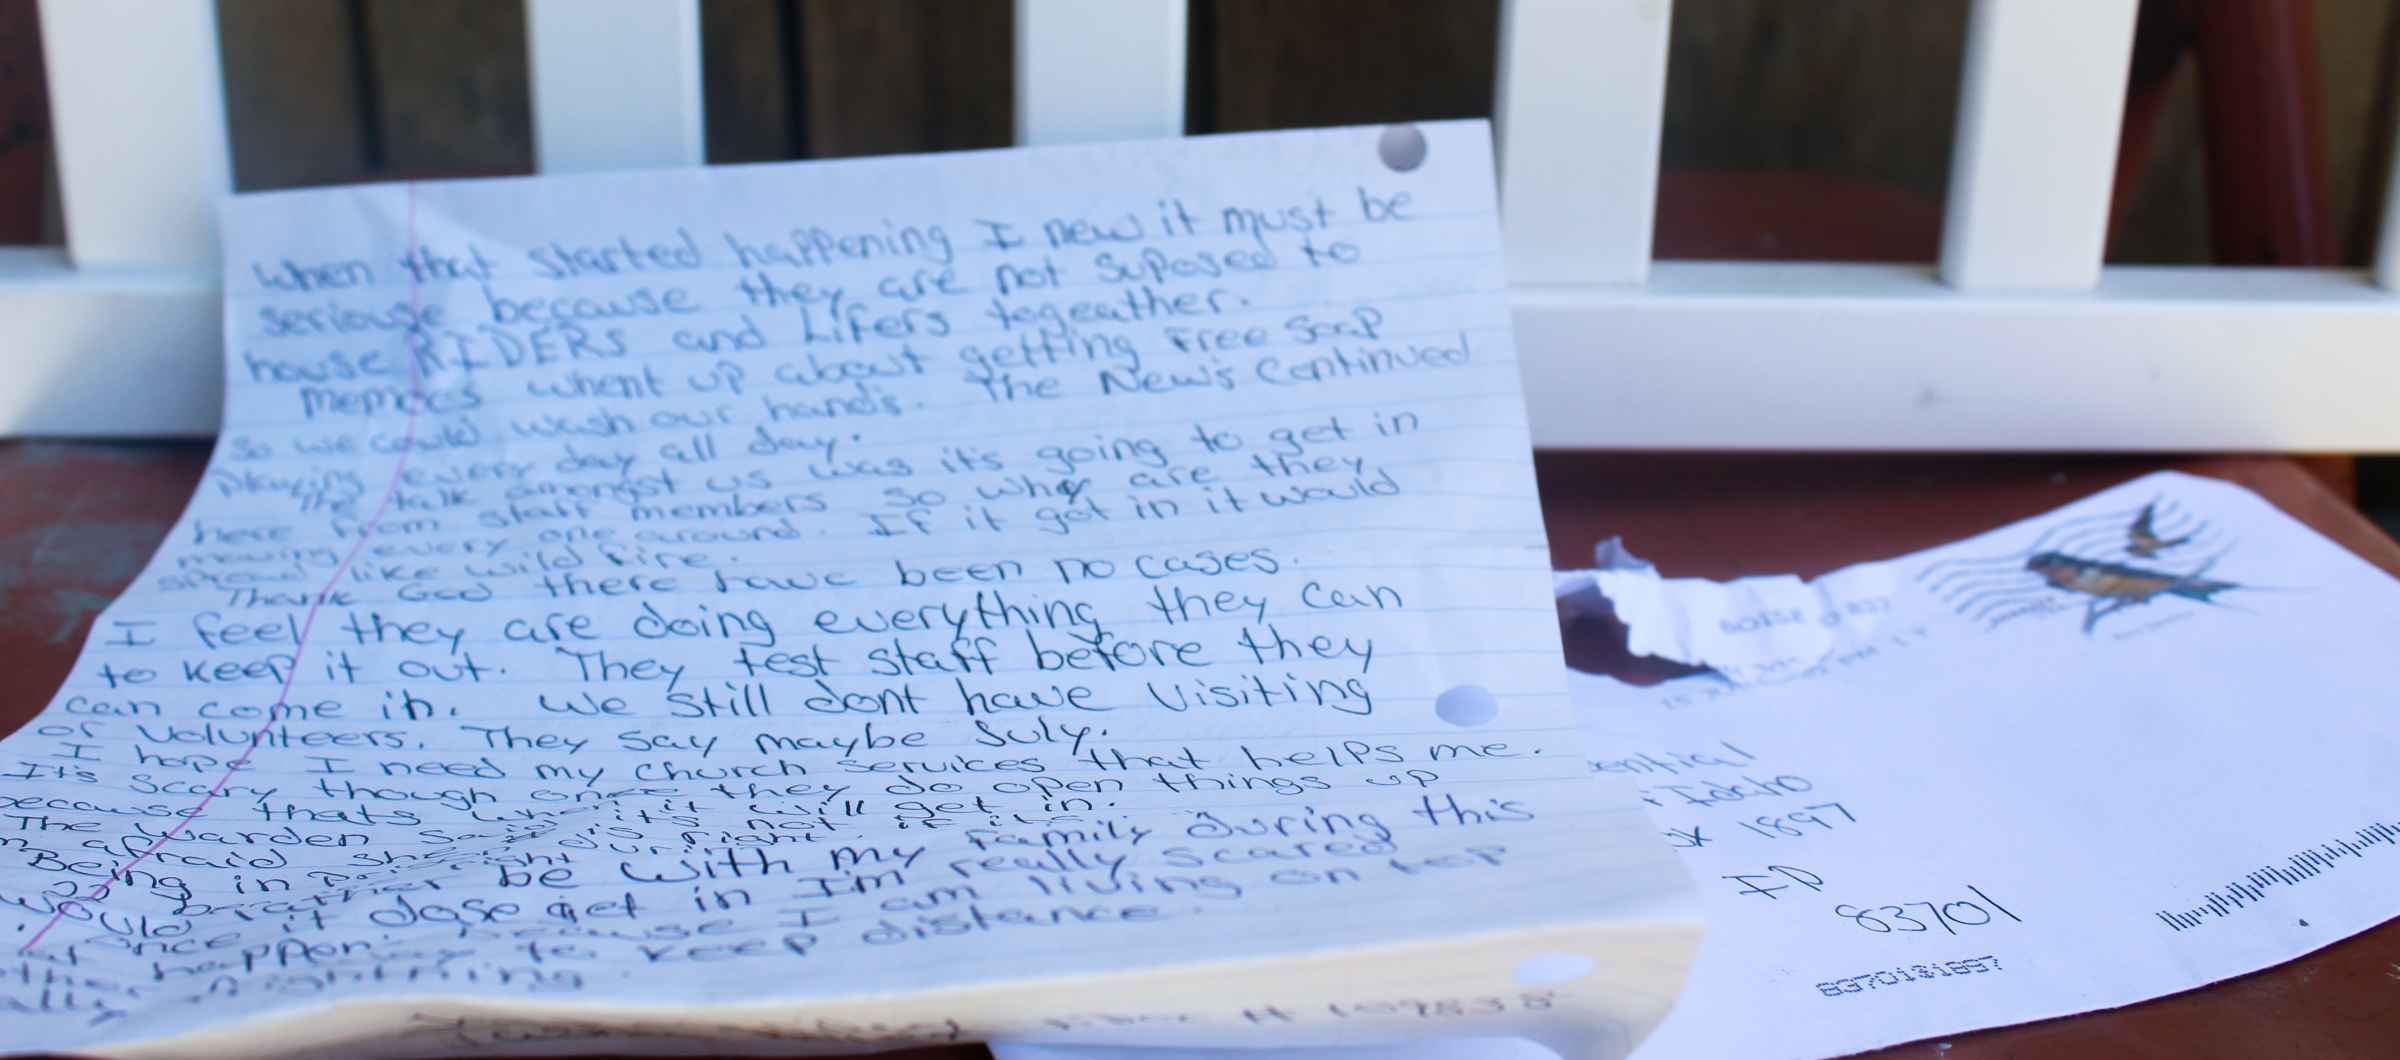 When that started happening I new it must be
seriouse because they are not suposed to
house RIDERS and Lifers togeather.
memoes whent up about getting free soap
so we could wash our hands. The News continued
playing every day all day.
the talk amongst us was it's going to get in
here from staff members so why are they
moving every one around. If it got in it would
spread like wild fire.
Thank God there have been no cases.
I feel they are doing everything they can
to keep it out. They test staff before they
can come in. We still dont have visiting
or volunteers. They say maybe July.
I hope I need my church services that helps me.
It's scary though once they do open things up
because thats when it will get in.
The warden said it's not if it's
afraid she's right
Being in
would be with my family during this
once it dose get in I'm really scared
happen because I am living on top
to keep distance.
# 109838
BOISE ID 837
ential
Idaho
1897
ID
83701
83701$1897